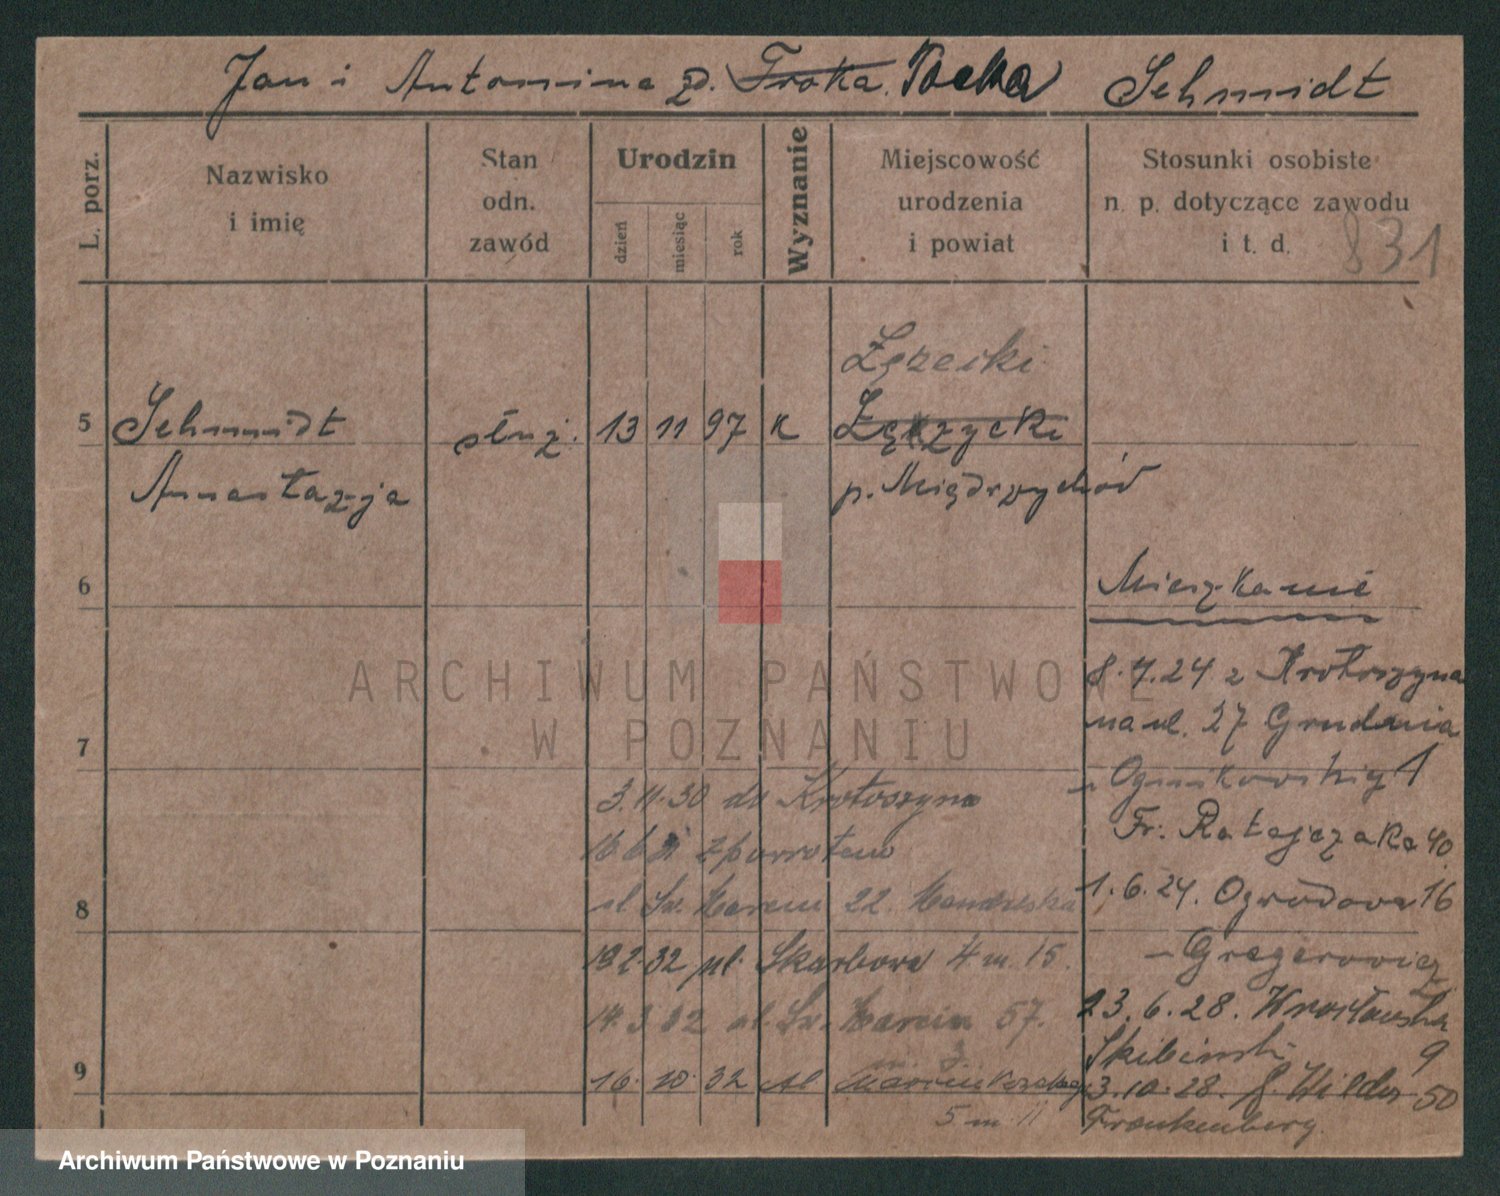 Jan i Antonina zd. Troka. Tocka Schmidt
L. porz.
Nazwisko
i imię
Stan
odn.
zawód
Urodzin
dzień
miesiąc
rok
Wyznanie
Miejscowość
urodzenia
i powiat
Stosunki osobiste
n. p. dotyczące zawodu
i t. d.
831
5
Schmidt
służ.
13 11 97 K
p. Międzychód
Anastazja
6
Mieszkanie
8.7.24 z Krotoszyna
na ul. 27 Grudnia
7
3.11.30 do Krotoszyna
Fr. Ratajczaka 40.
zpowrotem
8
ul Św. Marcin 22.
1.6.24. Ogrodowa 16
Gregerowicz
2.32 pl. Skarbowa 4 m. 15.
23.6.28. Wrocławska
3 32 ul. Św. Marcin 57.
Skibinski 9
9
16. 10. 32 ul
3.10.28. 50
5 m. 11
Frankenberg.
ARCHIWUM PAŃSTWOWE
W POZNANIU
Archiwum Państwowe w Poznaniu